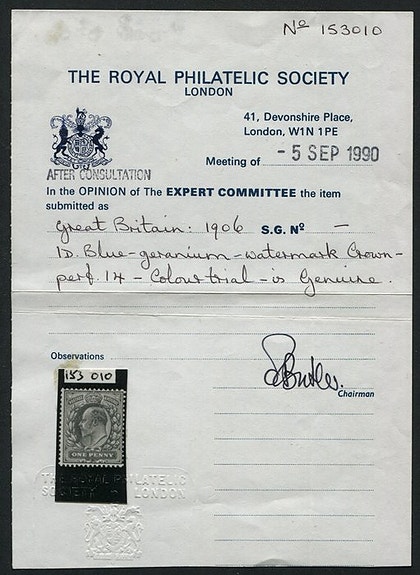 Nº 153010
THE ROYAL PHILATELIC SOCIETY
LONDON
41, Devonshire Place,
London, W1N 1PE
Meeting of - 5 SEP 1990
AFTER CONSULTATION
In the OPINION of The EXPERT COMMITTEE the item
submitted as
Great Britain: 1906 S.G. Nº —
1D. Blue-geranium - watermark Crown -
perf. 14 - Colour trial - is Genuine.
Observations
Chairman
153 010
ONE PENNY
THE ROYAL PHILATELIC
SOCIETY LONDON